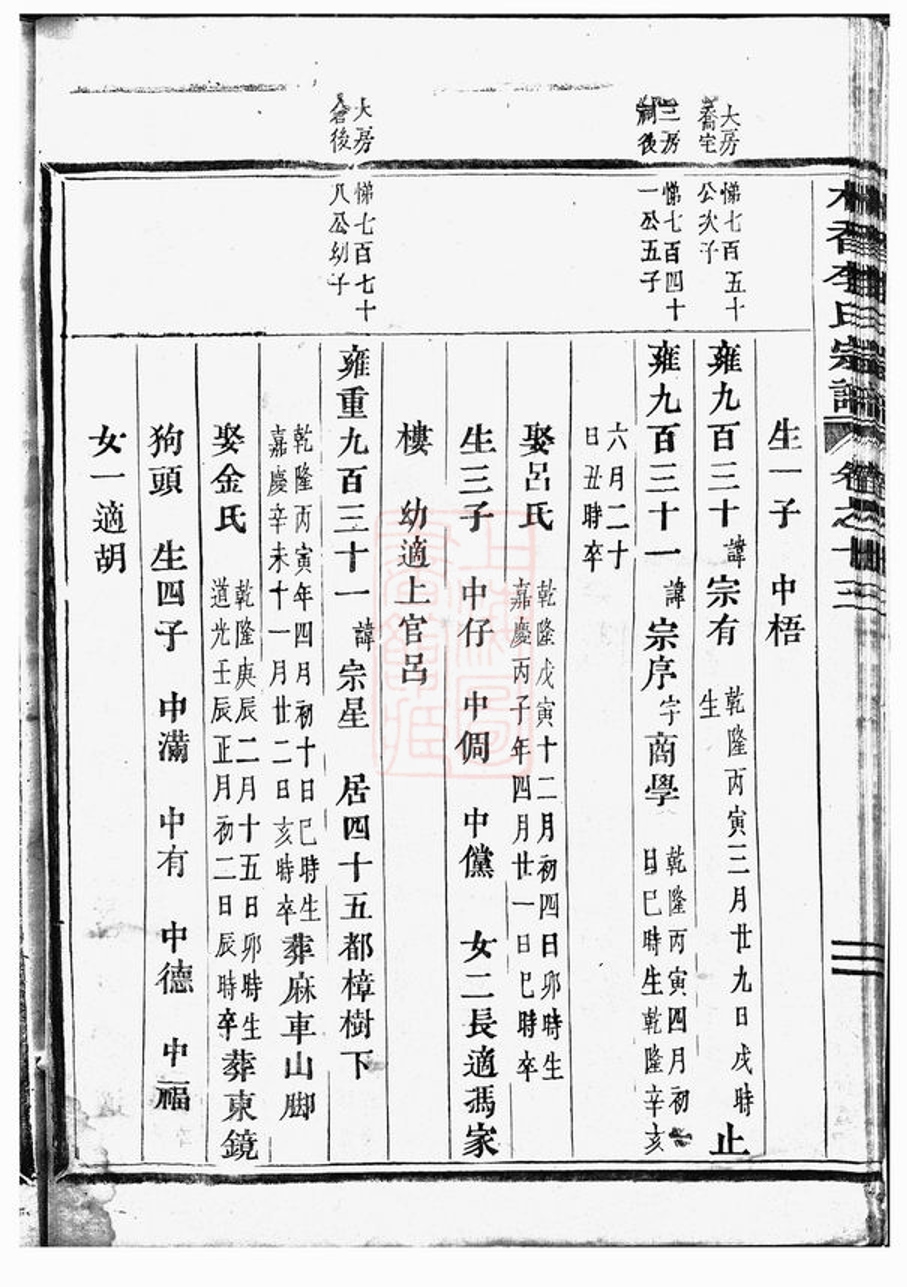 李氏宗譜 卷之十三
生一子 中梧
大房
喬宅
悌七百五十
公次子
雍九百三十 諱宗有 乾隆丙寅三月廿九日戌時
生
止
三房
祠後
悌七百四十
一公五子
雍九百三十一 諱宗序 字商學 乾隆丙寅四月初
日巳時生乾隆辛亥
六月二十
日丑時卒
娶呂氏 乾隆戊寅十二月初四日卯時生
嘉慶丙子年四月廿一日巳時卒
生三子 中仔 中倜 中儻 女二長適馮家
樓 幼適上官呂
大房
倉後
悌七百七十
八公幼子
雍重九百三十一 諱宗星 居四十五都樟樹下
乾隆丙寅年四月初十日巳時生
嘉慶辛未十一月廿二日亥時卒
葬麻車山脚
娶金氏 乾隆庚辰二月十五日卯時生
道光壬辰正月初二日辰時卒
葬東鏡
狗頭 生四子 中滿 中有 中德 中福
女一適胡